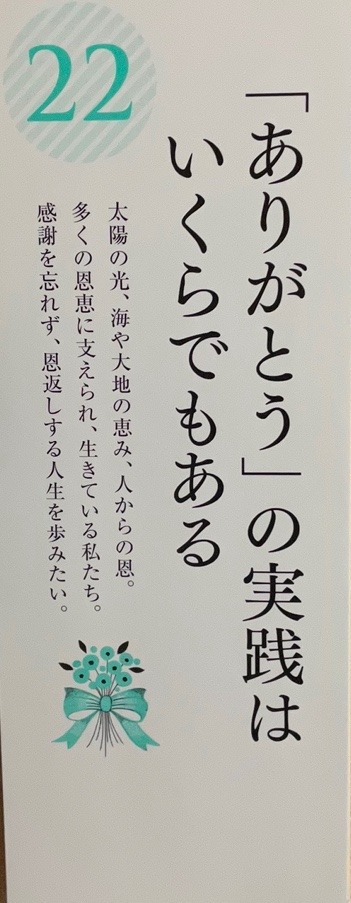 22
「ありがとう」の実践は
いくらでもある
太陽の光、海や大地の恵み、人からの恩。
多くの恩恵に支えられ、生きている私たち。
感謝を忘れず、恩返しする人生を歩みたい。